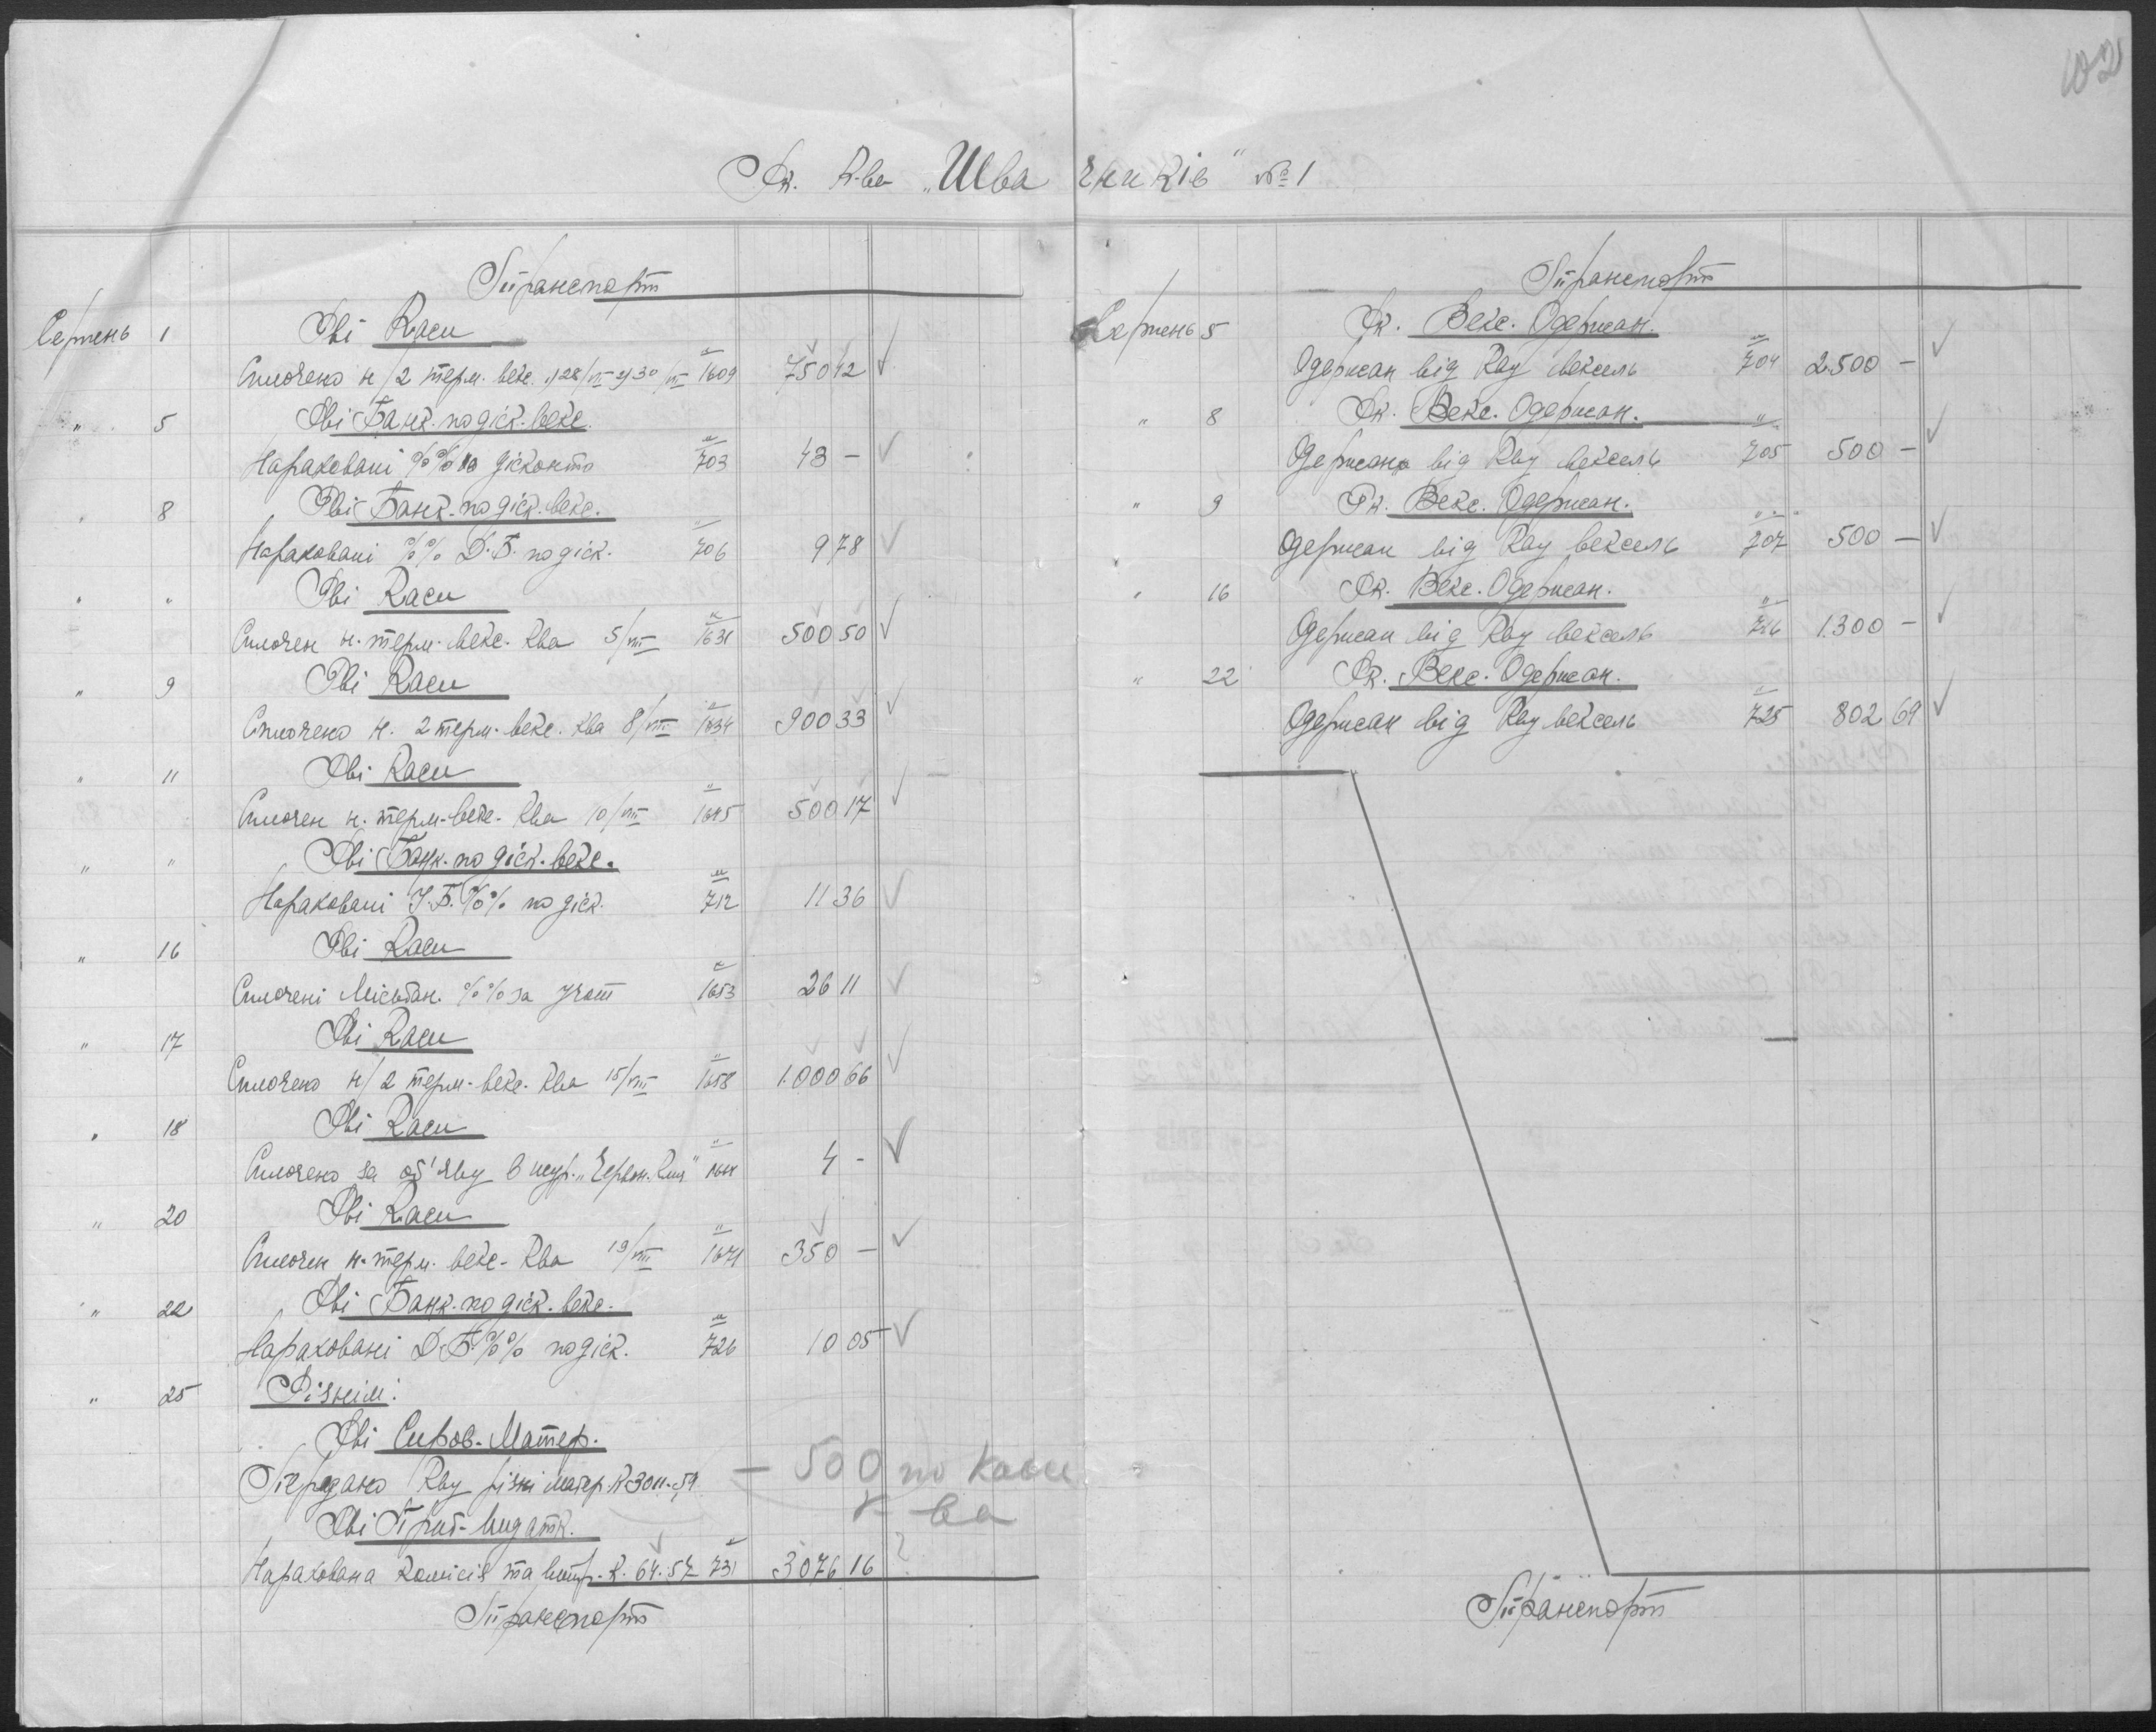 102
Рк. К-ва „Швачників" № 1
Транспорт
Серпень 1 Рві Каси
Сплочено н/2 терм. векс. 1) 28/VII 2) 30/VII 1609 750 42
" 5 Рві Банк. по діск. векс.
Нараховані %% по дісконто 703 43 -
" 8 Рві Банк. по діск. векс.
Нараховані %% Д.Б. по діск. 706 9 78
" " Рві Каси
Сплочен н. терм. векс. Ква 5/VIII 1631 500 50
" 9 Рві Каси
Сплочено н. 2 терм. векс. Ква 8/VIII 1634 900 33
" 11 Рві Каси
Сплочен н. терм. векс. Ква 10/VIII 1645 500 17
" " Рві Банк. по діск. векс.
Нараховані %% по діск. 712 11 36
" 16 Рві Каси
Сплочені Міськбан. %% за учот 1653 26 11
" 17 Рві Каси
Сплочено н/2 терм. векс. Ква 15/VIII 1658 1.000 66
" 18 Рві Каси
Сплочено за об'яву в жур. „Червон. 4 -
" 20 Рві Каси
Сплочен н. терм. векс. Ква 19/VIII 1671 350 -
" 22 Рві Банк. по діск. векс.
Нараховані Д.Б. %% по діск. 726 10 05
" 25 Різнім:
Рві Сиров. Матер.
Передано Кву різні матер. К 3011.59 - 500 по касі
к-ва
Рві Приб. Видатк.
Нарахована комісія та витр. К. 64.57 731 3076 16 ?
Транспорт
Транспорт
Серпень 5 Рк. Векс. Одержан.
Одержан від Кву вексель 704 2.500 -
" 8 Рк. Векс. Одержан.
Одержано від Кву вексель 705 500 -
" 9 Рк. Векс. Одержан.
Одержан від Кву вексель 707 500 -
" 16 Рк. Векс. Одержан.
Одержан від Кву вексель 716 1.300 -
" 22 Рк. Векс. Одержан.
Одержан від Кву вексель 725 802 69
Транспорт